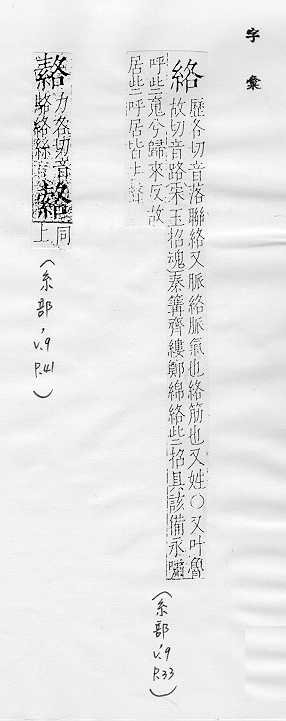 字彙
絡 歷各切音落聯絡又脈絡脈氣也絡筋也又姓○又叶魯
故切音路宋玉招魂秦篝齊縷鄭綿絡些招具該備永嘯
呼些䰟兮歸來反故
居些呼居皆上聲
(糸部, v.9 P.33)
力各切音
絡絲
同
上
(糸部, v.9 P.41)